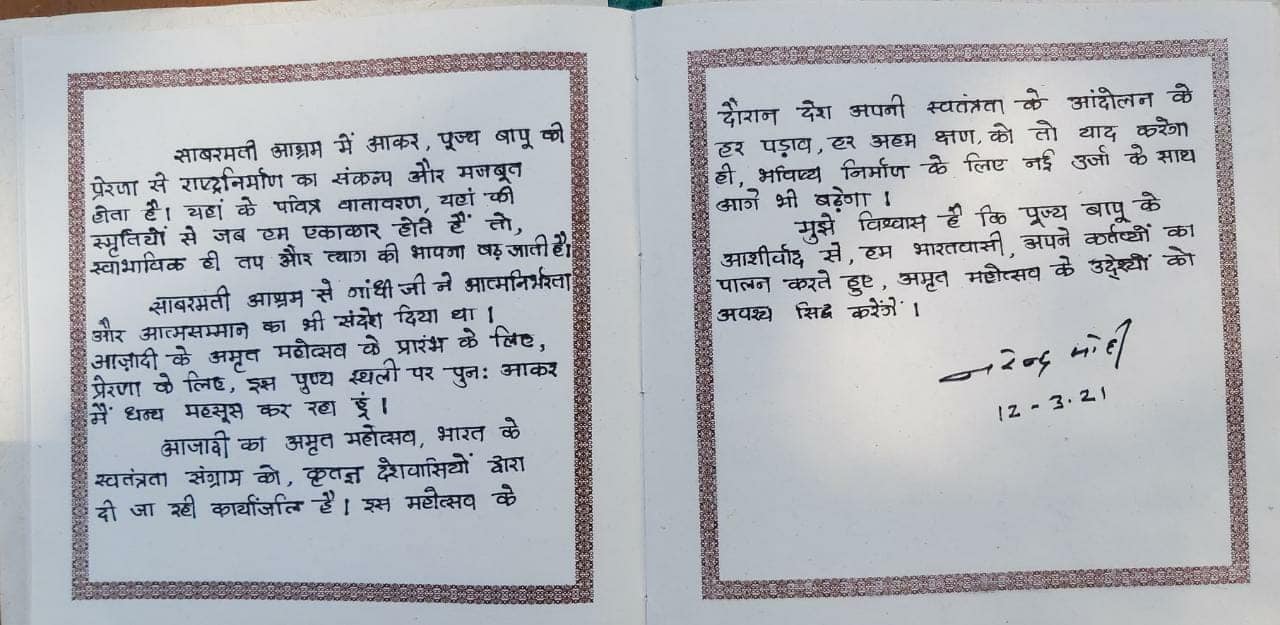 साबरमती आश्रम में आकर, पूज्य बापू की
प्रेरणा से राष्ट्रनिर्माण का संकल्प और मजबूत
होता है। यहां के पवित्र वातावरण, यहां की
स्मृतियों से जब हम एकाकार होते हैं तो,
स्वाभाविक ही तप और त्याग की भावना बढ़ जाती है।
साबरमती आश्रम से गांधी जी ने आत्मनिर्भरता
और आत्मसम्मान का भी संदेश दिया था।
आज़ादी के अमृत महोत्सव के प्रारंभ के लिए,
प्रेरणा के लिए, इस पुण्य स्थली पर पुनः आकर
मैं धन्य महसूस कर रहा हूं।
आजादी का अमृत महोत्सव, भारत के
स्वतंत्रता संग्राम को, कृतज्ञ देशवासियों द्वारा
दी जा रही कार्यांजलि है। इस महोत्सव के
दौरान देश अपनी स्वतंत्रता के आंदोलन के
हर पड़ाव, हर अहम क्षण, को तो याद करेगा
ही, भविष्य निर्माण के लिए नई उर्जा के साथ
आगे भी बढ़ेगा।
मुझे विश्वास है कि पूज्य बापू के
आशीर्वाद से, हम भारतवासी, अपने कर्तव्यों का
पालन करते हुए, अमृत महोत्सव के उद्देश्यों को
अवश्य सिद्ध करेंगें।
नरेन्द्र मोदी
12-3.21